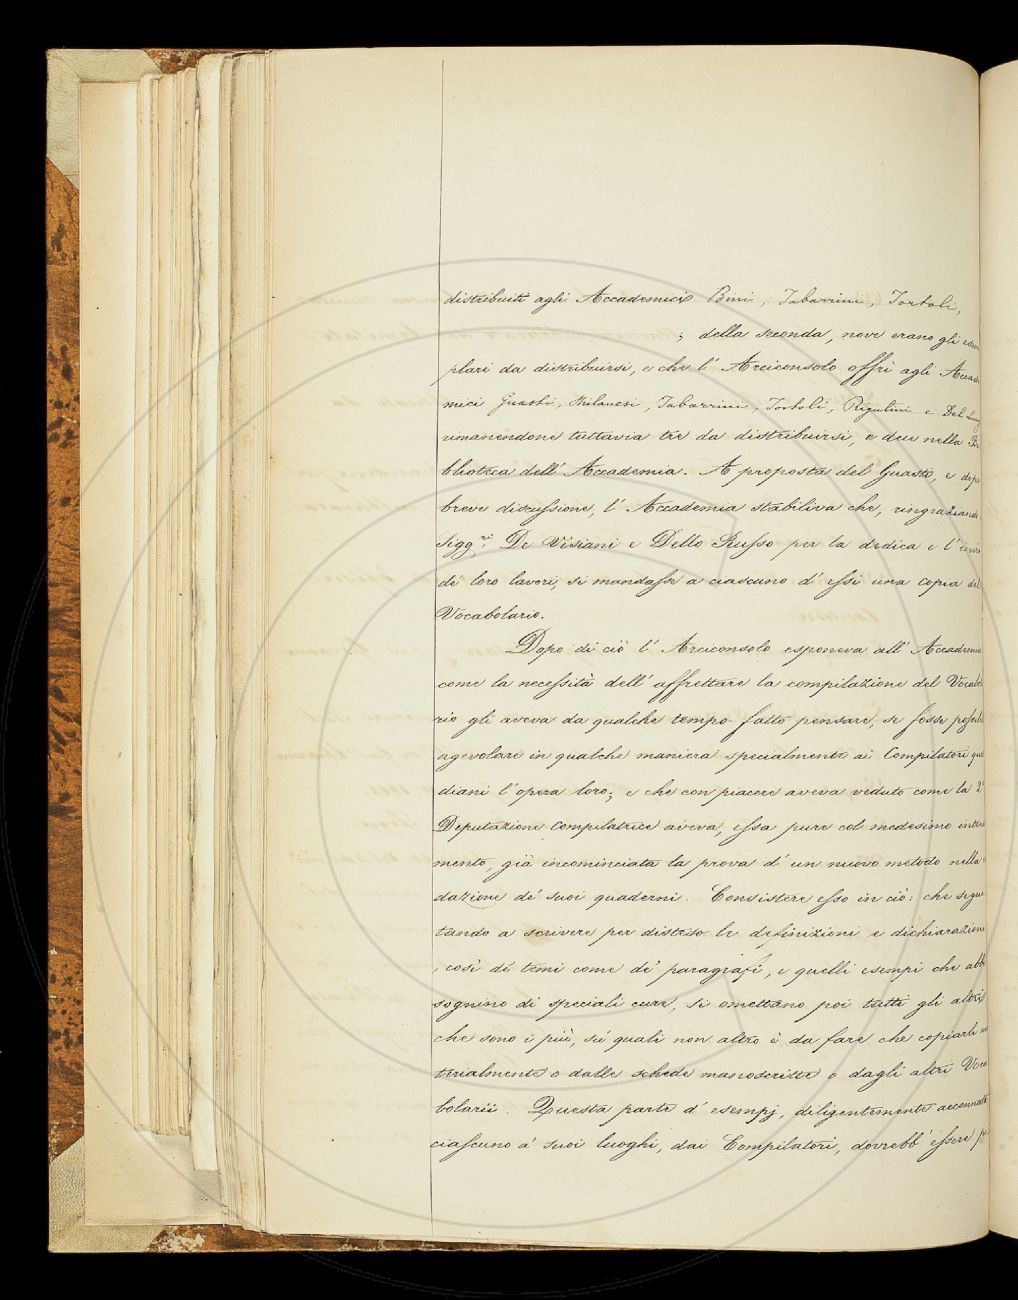 distribuiti agli Accademici Bini, Tabarrini, Tortoli,
; della seconda, nove erano gli esem
plari da distribuirsi, e che l' Arciconsolo offrì agli Accade
mici Guasti, Milanesi, Tabarrini, Tortoli, Rigutini e Del Lung
rimanendone tuttavia tre da distribuirsi, e due nella Bi
blioteca dell' Accademia. A proposta del Guasti, e dopo
breve discussione, l' Accademia stabiliva che, ringraziando
Sigg.ri De Visiani e Dello Russo per la dedica e l' invio
de' loro lavori, si mandasse a ciascuno d' essi una copia del
Vocabolario.
Dopo di ciò l' Arciconsolo esponeva all' Accademia
come la necessità dell' affrettare la compilazione del Vocabo
rio gli aveva da qualche tempo fatto pensare, se fosse possibi
agevolare in qualche maniera specialmente ai Compilatori quo
diani l' opera loro; e che con piacere aveva veduto come la 2ª
Deputazione Compilatrice aveva, essa pure col medesimo intendi
mento, già incominciata la prova d' un nuovo metodo nella
dazione de' suoi quaderni. Consistere esso in ciò: che segui
tando a scrivere per disteso le definizioni e dichiarazioni
, così de' temi come de' paragrafi, e quelli esempi che abbi
sognino di speciali cure, si omettano poi tutti gli altri
che sono i più, su' quali non altro è da fare che copiarli ma
terialmente o dalle schede manoscritte o dagli altri Voca
bolarii. Questa parte d' esempj, diligentemente accennata
ciascuno a' suoi luoghi, dai Compilatori, dovrebb' essere